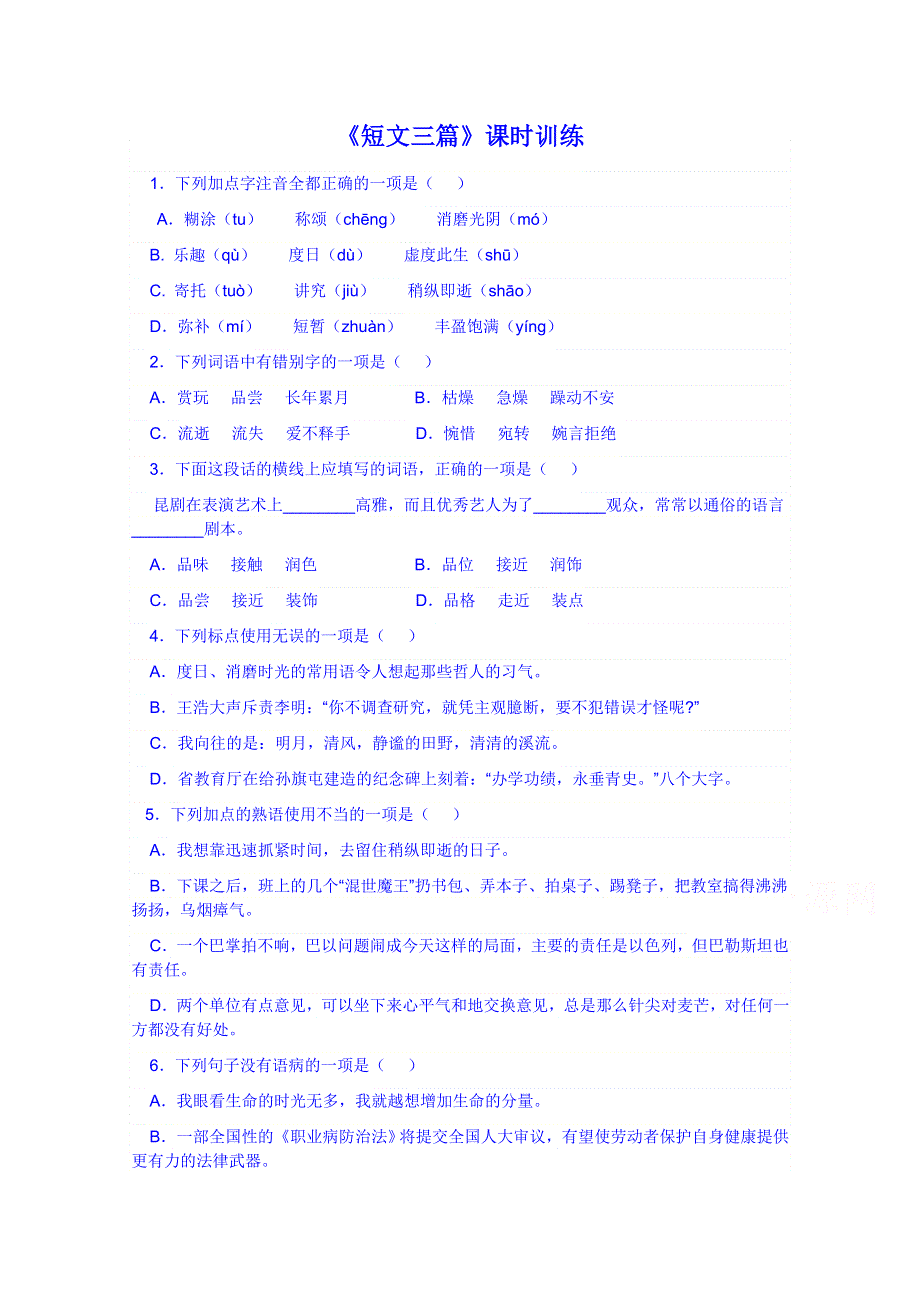 《短文三篇》课时训练
1．下列加点字注音全都正确的一项是（ ）
A．糊涂（tu） 称颂（chēng） 消磨光阴（mó）
B．乐趣（qù） 度日（dù） 虚度此生（shū）
C．寄托（tuò） 讲究（jiù） 稍纵即逝（shāo）
D．弥补（mí） 短暂（zhuàn） 丰盈饱满（yíng）
2．下列词语中有错别字的一项是（ ）
A．赏玩 品尝 长年累月 B．枯燥 急燥 躁动不安
C．流逝 流失 爱不释手 D．惋惜 宛转 婉言拒绝
3．下面这段话的横线上应填写的词语，正确的一项是（ ）
昆剧在表演艺术上________高雅，而且优秀艺人为了________观众，常常以通俗的语言
________剧本。
A．品味 接触 润色 B．品位 接近 润饰
C．品尝 接近 装饰 D．品格 走近 装点
4．下列标点使用无误的一项是（ ）
A．度日、消磨时光的常用语令人想起那些哲人的习气。
B．王浩大声斥责李明：“你不调查研究，就凭主观臆断，要不犯错误才怪呢?”
C．我向往的是：明月，清风，静谧的田野，清清的溪流。
D．省教育厅在给孙旗屯建造的纪念碑上刻着：“办学功绩，永垂青史。”八个大字。
5．下列加点的熟语使用不当的一项是（ ）
A．我想靠迅速抓紧时间，去留住稍纵即逝的日子。
B．下课之后，班上的几个“混世魔王”扔书包、弄本子、拍桌子、踢凳子，把教室搞得沸沸
扬扬，乌烟瘴气。
C．一个巴掌拍不响，巴以问题闹成今天这样的局面，主要的责任是以色列，但巴勒斯坦也
有责任。
D．两个单位有点意见，可以坐下来心平气和地交换意见，总是那么针尖对麦芒，对任何一
方都没有好处。
6．下列句子没有语病的一项是（ ）
A．我眼看生命的时光无多，我就越想增加生命的分量。
B．一部全国性的《职业病防治法》将提交全国人大审议，有望使劳动者保护自身健康提供
更有力的法律武器。